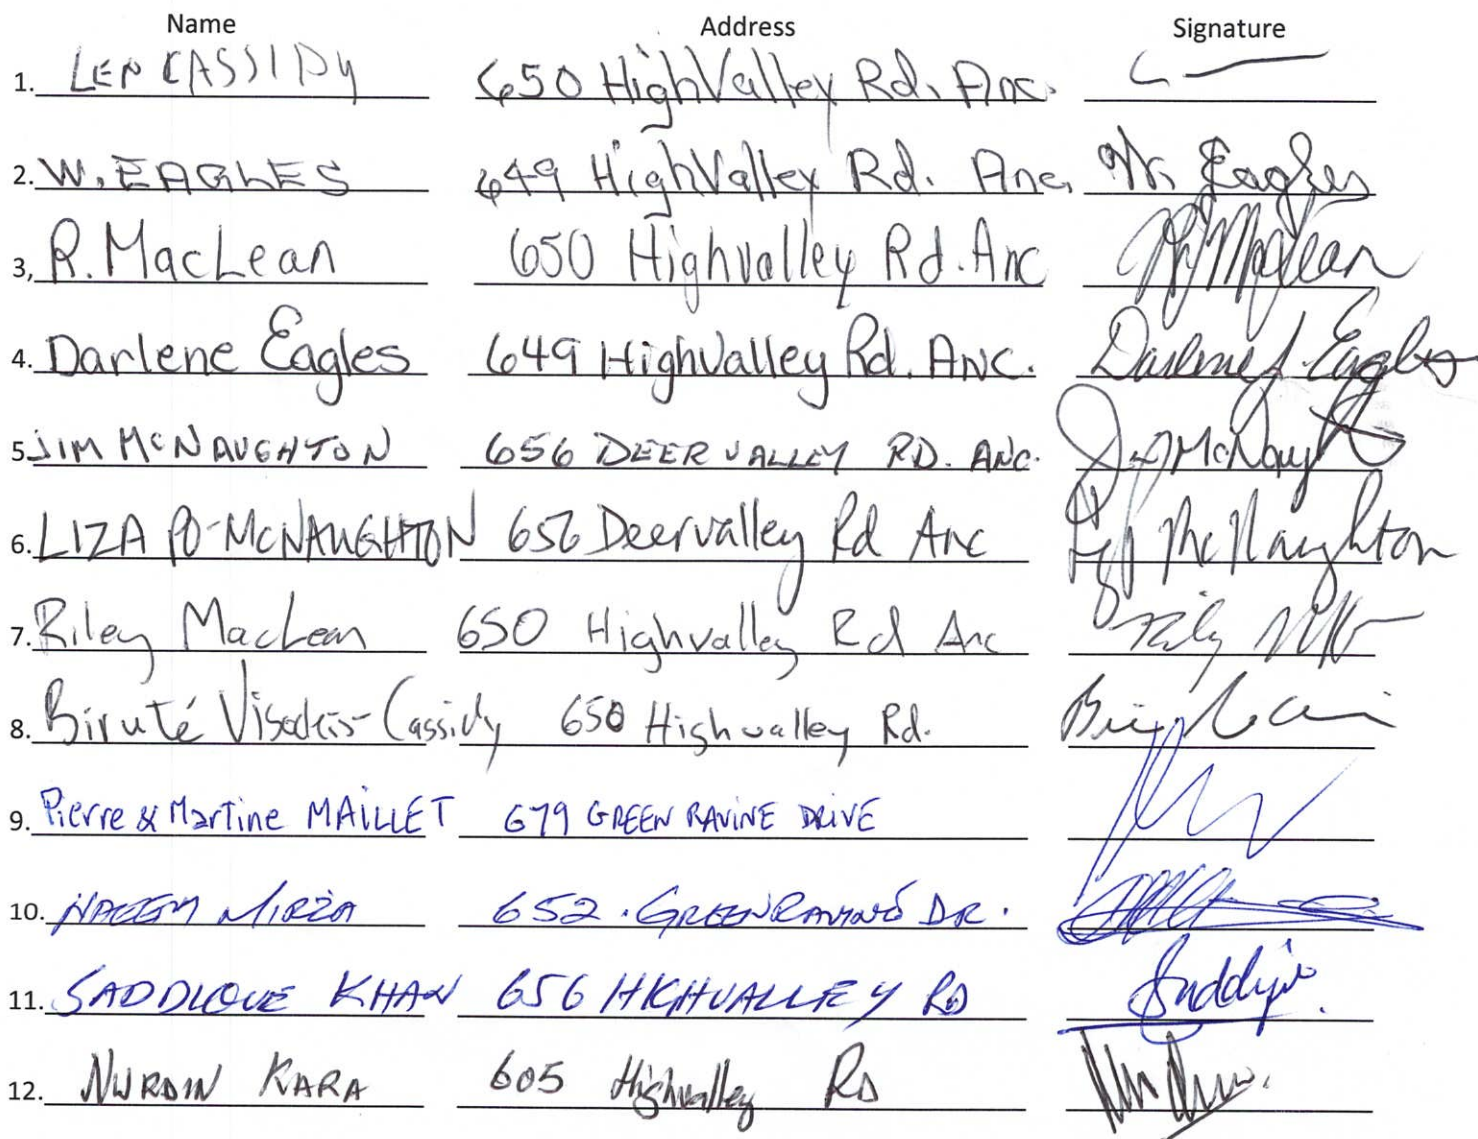 Name Address Signature
1. LEN CASSIDY 650 HighValley Rd. Anc.
2. W. EAGLES 649 HighValley Rd. Anc. W. Eagles
3, R. MacLean 650 Highvalley Rd. Anc MacLean
4. Darlene Eagles 649 Highvalley Rd. Anc. Darlene J. Eagles
5. JIM MCNAUGHTON 656 DEERVALLEY RD. ANC. McNaught
6. LIZA PO-MCNAUGHTON 656 Deervalley Rd Anc McNaughton
7. Riley MacLean 650 Highvalley Rd Anc Riley
8. Biruté Cassidy 650 Highvalley Rd.
9. Pierre & Martine MAILLET 679 GREEN RAVINE DRIVE
10. NAEEM MIRZA 652. GREENRAVINE DR.
11. KHAN 656 HIGHVALLEY RD
12. NURDIN KARA 605 Highvalley RD